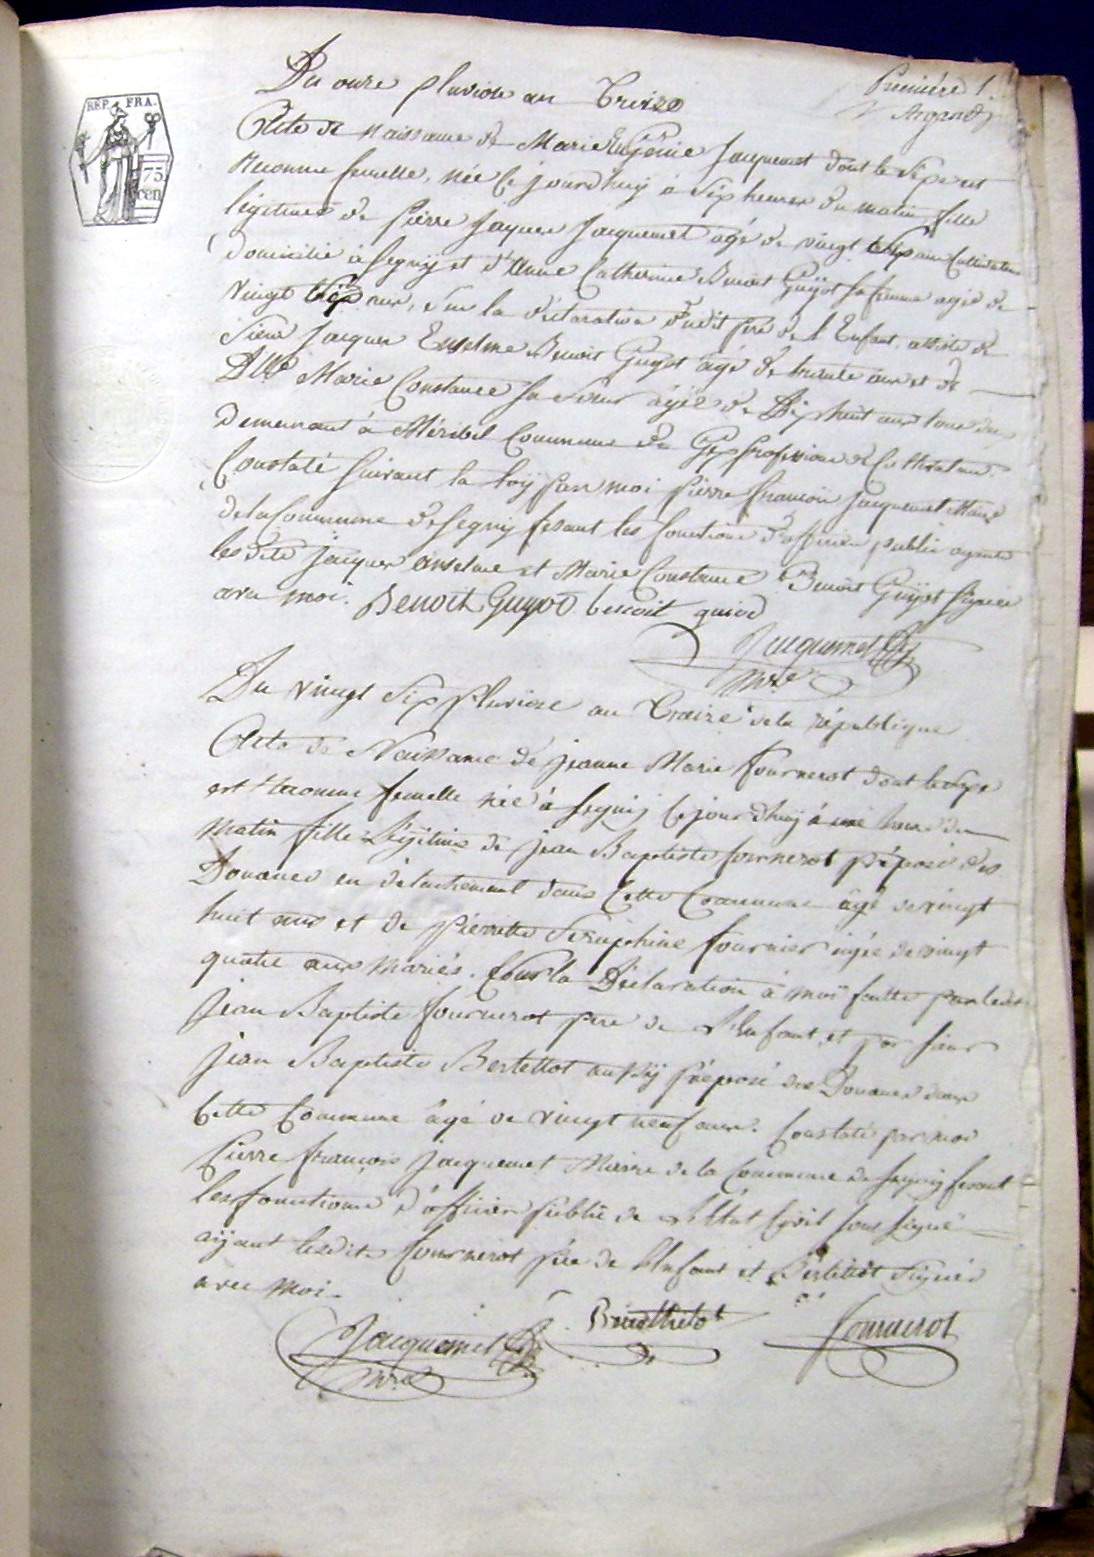 REP. FRA.
75
cen
Première 1
Du onze pluviose an Treize
Acte de Naissance de Marie Eugénie Jacquemet dont le Sexe est
Reconnu femelle, née ce jourdhuy à Six heures du matin, fille
légitime de Pierre Jaques Jacquemet agé de vingt ans Cultivateur
Domicilié à Segny et d'Anne Catherine Benoit Guÿot sa femme agée de
vingt ans, Sur la déclaration dudit père de l'Enfant, assisté de
Sieur Jacques Enselme Benoit Guyot agé de trente ans et de
Dlle Marie Constance sa Soeur agée de Dix huit ans tous deux
Demeurant à Méribel Commune de Gex profession de Cultivateur.
Constaté suivant la Loÿ par moi Pierre François Jacquemet Maire
de la Commune de Segny fesant les fonctions d'officier public ayants
lesdits Jacques Anselme et Marie Constance Benoit Guÿot signés
avec moi. Benoit Guyot benoit guiod
Jacquemet
mre
Du vingt Six Pluviose an Treize de la république
Acte de Naissance de Jeanne Marie Fournerot dont le sexe
est Reconnu femelle née à Segny ce jourdhuÿ à une heure du
matin fille Légitime de Jean Baptiste fournerot préposé des
Douanes en détachement dans Cette Commune âgé de vingt
huit ans et de Pierrette Séraphine Fournier agée de vingt
quatre ans mariés. Sur la Déclaration à moi faitte par ledit
Jean Baptiste fournerot père de l'Enfant, et par Sieur
Jean Baptiste Bertellot aussÿ préposé des Douanes dans
Cette Commune âgé de vingt neuf ans. Constaté par moi
Pierre François Jacquemet Maire de la Commune de Segny fesant
les fonctions d'officier public de l'Etat Civil sous signé
aÿant lesdits fournerot père de l'Enfant et Bertellot signés
avec moi.
Jacquemet Fournerot
mre